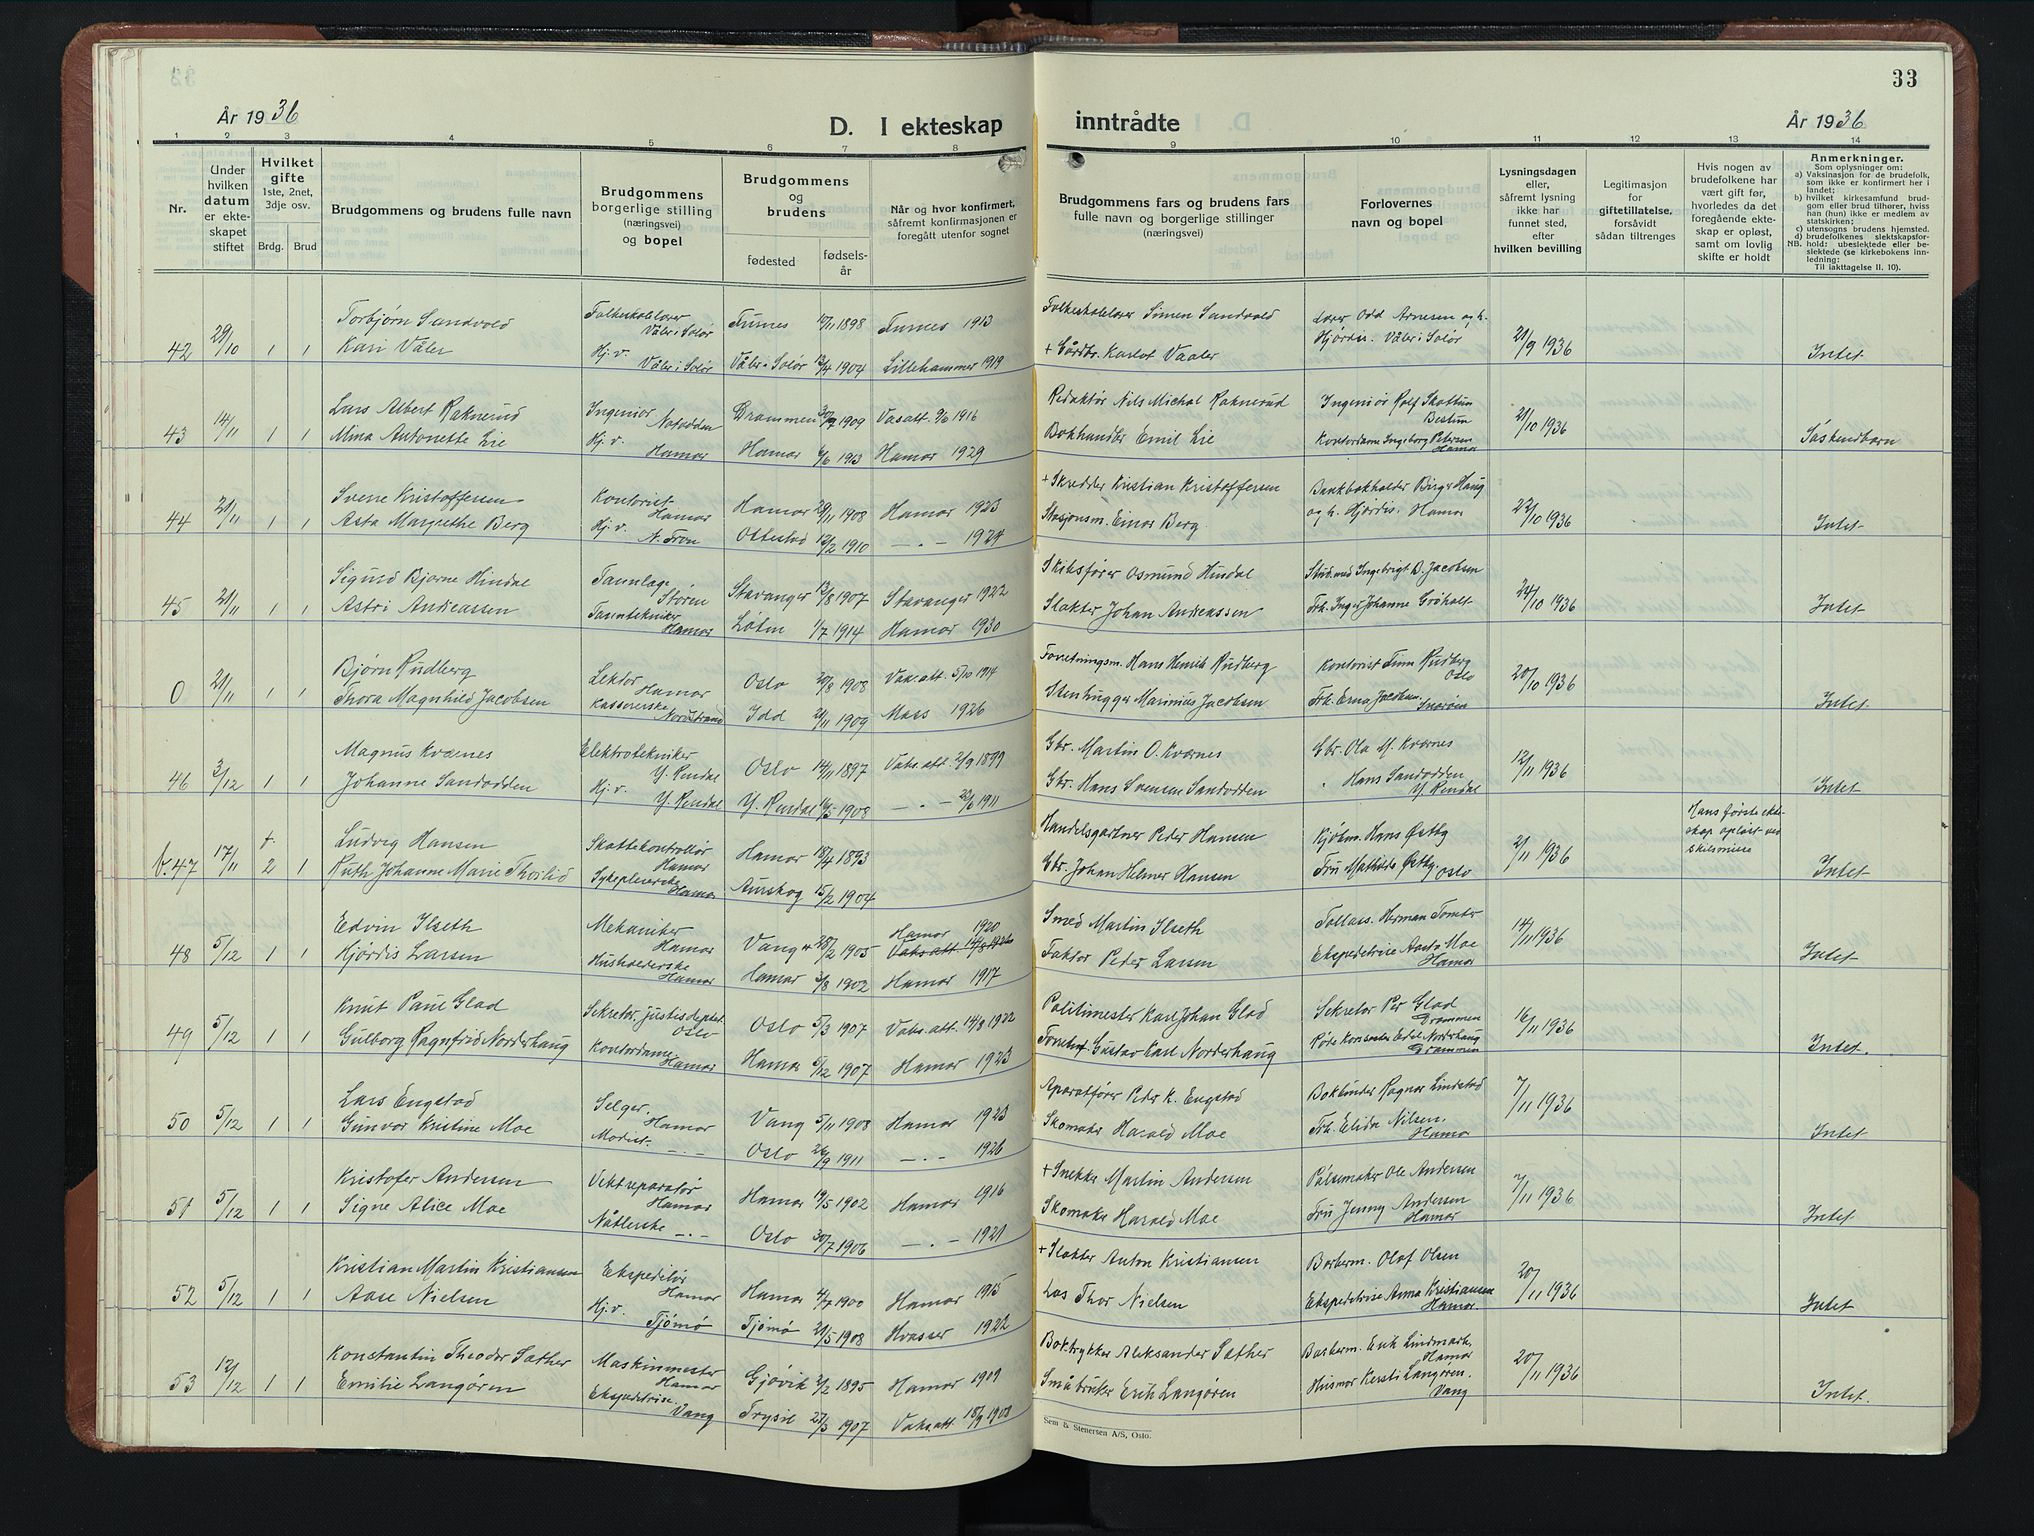 33
År 1936
D. I ekteskap inntrådte
År 1936
1 2 3 4 5 6 7 8 9 10 11 12 13 14
Nr.
Under hvilken datum er ekteskapet stiftet
Hvilket gifte
1ste, 2net, 3dje osv.
Brdg. Brud
Brudgommens og brudens fulle navn
Brudgommens borgerlige stilling (næringsvei) og bopel
Brudgommens og brudens
fødested
fødselsår
Når og hvor konfirmert, såfremt konfirmasjonen er foregått utenfor sognet
Brudgommens fars og brudens fars fulle navn og borgerlige stillinger (næringsvei)
Forlovernes navn og bopel
Lysningsdagen eller, såfremt lysning ikke har funnet sted, efter hvilken bevilling
Legitimasjon for giftetillatelse, forsåvidt sådan tiltrenges
Hvis nogen av brudefolkene har vært gift før, hvorledes da det foregående ekteskap er opløst, samt om lovlig skifte er holdt
Anmerkninger.
Som oplysninger om:
a) Vaksinasjon for de brudefolk, som ikke er konfirmert her i landet;
b) hvilket kirkesamfund brudgom eller brud tilhører, hviss han (hun) ikke er medlem av statskirken;
c) utensogns brudens hjemsted.
d) brudefolkenes slektskapsforhold: ubeslektede eller beslektede (se kirkebokens innledning;
NB.
Til iakttagelse II. 10).
42 29/10 1 1 Torbjørn Sundvold Folkeskolelærer Våler i Solør Furnes 17/11 1898 Furnes 1913 Folkeskolelærer Simen Sundvold Lærer Odd Arnesen og h. Hjørdis. Våler i Solør 21/9 1936 Intet
Kari Våler Hj. v. Våler i Solør Våler i Solør 13/4 1904 Lillehammer 1919 + Gårdbr. Karlot Vaaler
43 14/11 1 1 Lars Albert Raknerud Ingeniør Notodden Drammen 30/9 1909 Vaks.att. 9/6 1916 Redaktør Nils Michal Raknerud Ingeniør Rolf Skattum Bestum 21/10 1936 Søskendbarn
Mina Antonette Lie Hj. v. Hamar Hamar 6/6 1913 Hamar 1929 Bokhandler Emil Lie Kontordame Ingeborg Petersen Hamar
44 21/11 1 1 Svene Kristoffersen Kontorist Hamar Hamar 29/11 1908 Hamar 1923 + Skredder Kristian Kristoffersen Bankbokholder Birger Haug og h. Hjørdis. Hamar 22/10 1936 Intet
Asta Margrethe Berg Hj. v. N. Fron Ottestad 12/2 1910 — . — 1924 Stasjonsm. Einar Berg
45 21/11 1 1 Sigurd Bjarne Hindal Tannlæge Støren Stavanger 12/8 1907 Stavanger 1922 Skibsfører Osmund Hindal Stud.med Ingebrigt B. Jacobsen 24/10 1936 Intet
Astri Andreassen Tanntekniker Hamar Løten 1/7 1914 Hamar 1930 Slakter Johan Andreassen Frk. Inger Johanne Grøholt
0 21/11 1 1 Bjørn Rudberg Lektor Hamar Oslo 20/8 1908 Vaks.att. 5/10 1914 Forretningsm. Hans Henrik Rudberg Kontorist Finn Rudberg Oslo 20/10 1936 Intet
Thora Magnhild Jacobsen Kassererske Nordstrand Idd 21/11 1909 Moss 1926 Stenhugger Marinius Jacobsen Frk. Erna Jacobsen. Snarøen
46 3/12 1 1 Magnus Kværnes Elektrotekniker Y. Rendal Oslo 14/11 1897 Vaks.att. 2/9 1899 Gbr. Martin O. Kværnes Gbr. Ola M. Kværnes 12/11 1936 Intet
Johanne Sandodden Hj. v. Y. Rendal Y. Rendal 16/5 1908 — . — 22/6 1911 Gbr. Hans Svensen Sandodden " Hans Sandodden Y. Rendal
b. 47 17/11 f. 2 1 Ludvig Hansen Skattekontrollør Hamar Hamar 18/4 1893 Handelsgartner Peder Hansen Kjøbm. Hans Østby 2/11 1936 Hans første ekteskap opløst ved skilsmisse Intet
Ruth Johanne Marie Thorlid Sykepleierske Hamar Aurskog 15/2 1904 Gbr. Johan Helmer Hansen Fru Mathilde Østby. Oslo
48 5/12 1 1 Edvin Ilseth Mekaniker Hamar Vang 28/2 1905 Hamar 1920 Vaks.att. 14/8 1922 Smed Martin Ilseth Tollass. Herman Tomter 14/11 1936 Intet
Hjørdis Larsen Husholderske Hamar Hamar 3/8 1902 Hamar 1917 Faktor Peder Larsen Ekspeditrise Aasta Moe Hamar
49 5/12 1 1 Knut Paul Glad Sekretær. justisdeptet. Oslo Oslo 5/3 1907 Vaks.att. 14/8 1922 Politimester Karl Johan Glad Sekretær Per Glad Drammen 16/11 1936 Intet.
Gulborg Ragnfrid Norderhaug Kontordame Hamar Hamar 6/12 1907 Hamar 1923 Forretn. Gustav Karl Norderhaug Røde Korssøster Edel Norderhaug Drammen
50 5/12 1 1 Lars Engstad Selger. Hamar Vang 5/11 1908 Hamar 1923 Aparatfører Peder K. Engstad Bokbinder Ragnar Lindstad 7/11 1936 Intet
Gunvor Kristine Moe Modist. — . — Oslo 26/9 1911 — . — 1926 Skomaker Harald Moe Frk. Elida Nilsen. Hamar
51 5/12 1 1 Kristofer Andersen Vektreparatør Hamar Hamar 19/5 1902 Hamar 1916 + Snekker Martin Andersen Pølsemaker Ole Andersen 7/11 1936 Intet
Signe Alice Moe Nåtlerske — . — Oslo 30/7 1906 — . — 1921 Skomaker Harald Moe Fru Jenny Andersen Hamar
52 5/12 1 1 Kristian Martin Kristiansen Ekspeditør Hamar Hamar 4/7 1900 Hamar 1915 + Slakter Anton Kristiansen Barberm. Olaf Olsen 20/11 1936 Intet
Aase Nielsen Hj. v. Tjømø Tjømø 21/5 1908 Hvasser 1922 Los Thor Nielsen Ekspeditrise Anna Kristiansen Hamar
53 12/12 1 1 Konstantin Theodor Sæther Maskinmester Hamar Gjøvik 2/2 1895 Hamar 1909 Boktrykker Aleksander Sæther Barberm. Erik Lindmark, Hamar 20/11 1936 Intet.
Emilie Langøren Ekspeditrise Vang Trysil 27/3 1907 Vaks.att. 18/9 1908 Småbruker Erik Langøren Husmor Kersti Langøren. Vang
Sem & Stenersen A/S, Oslo.